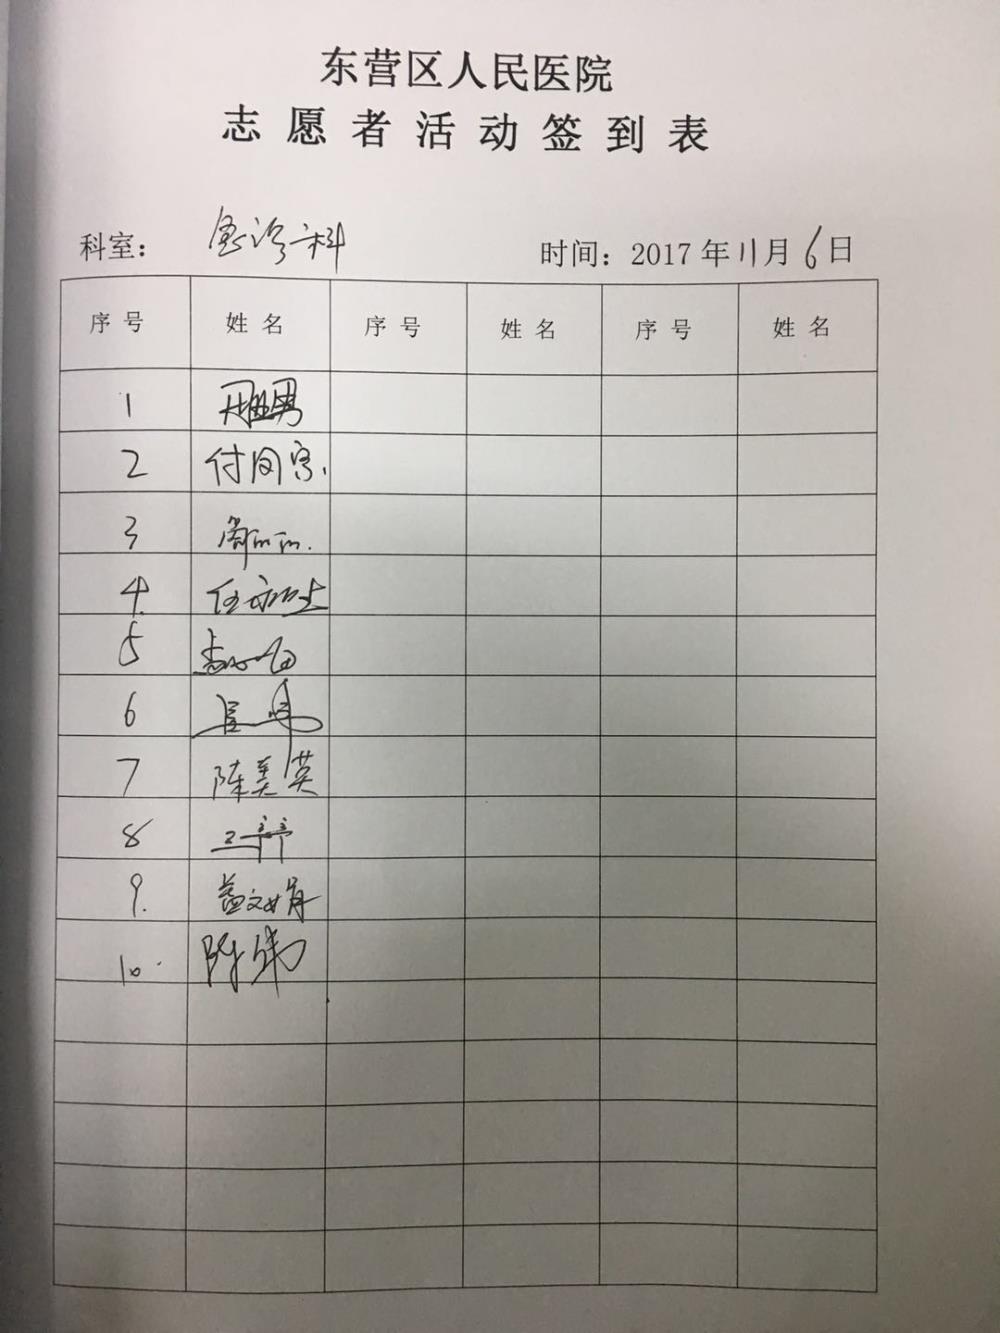 东营区人民医院
志愿者活动签到表
科室： 急诊科 时间：2017年11月6日
序号 姓名 序号 姓名 序号 姓名
1
2 付同宾
3
4.
5
6
7 陈美英
8 王齐
9. 盖文娟
10. 陈伟